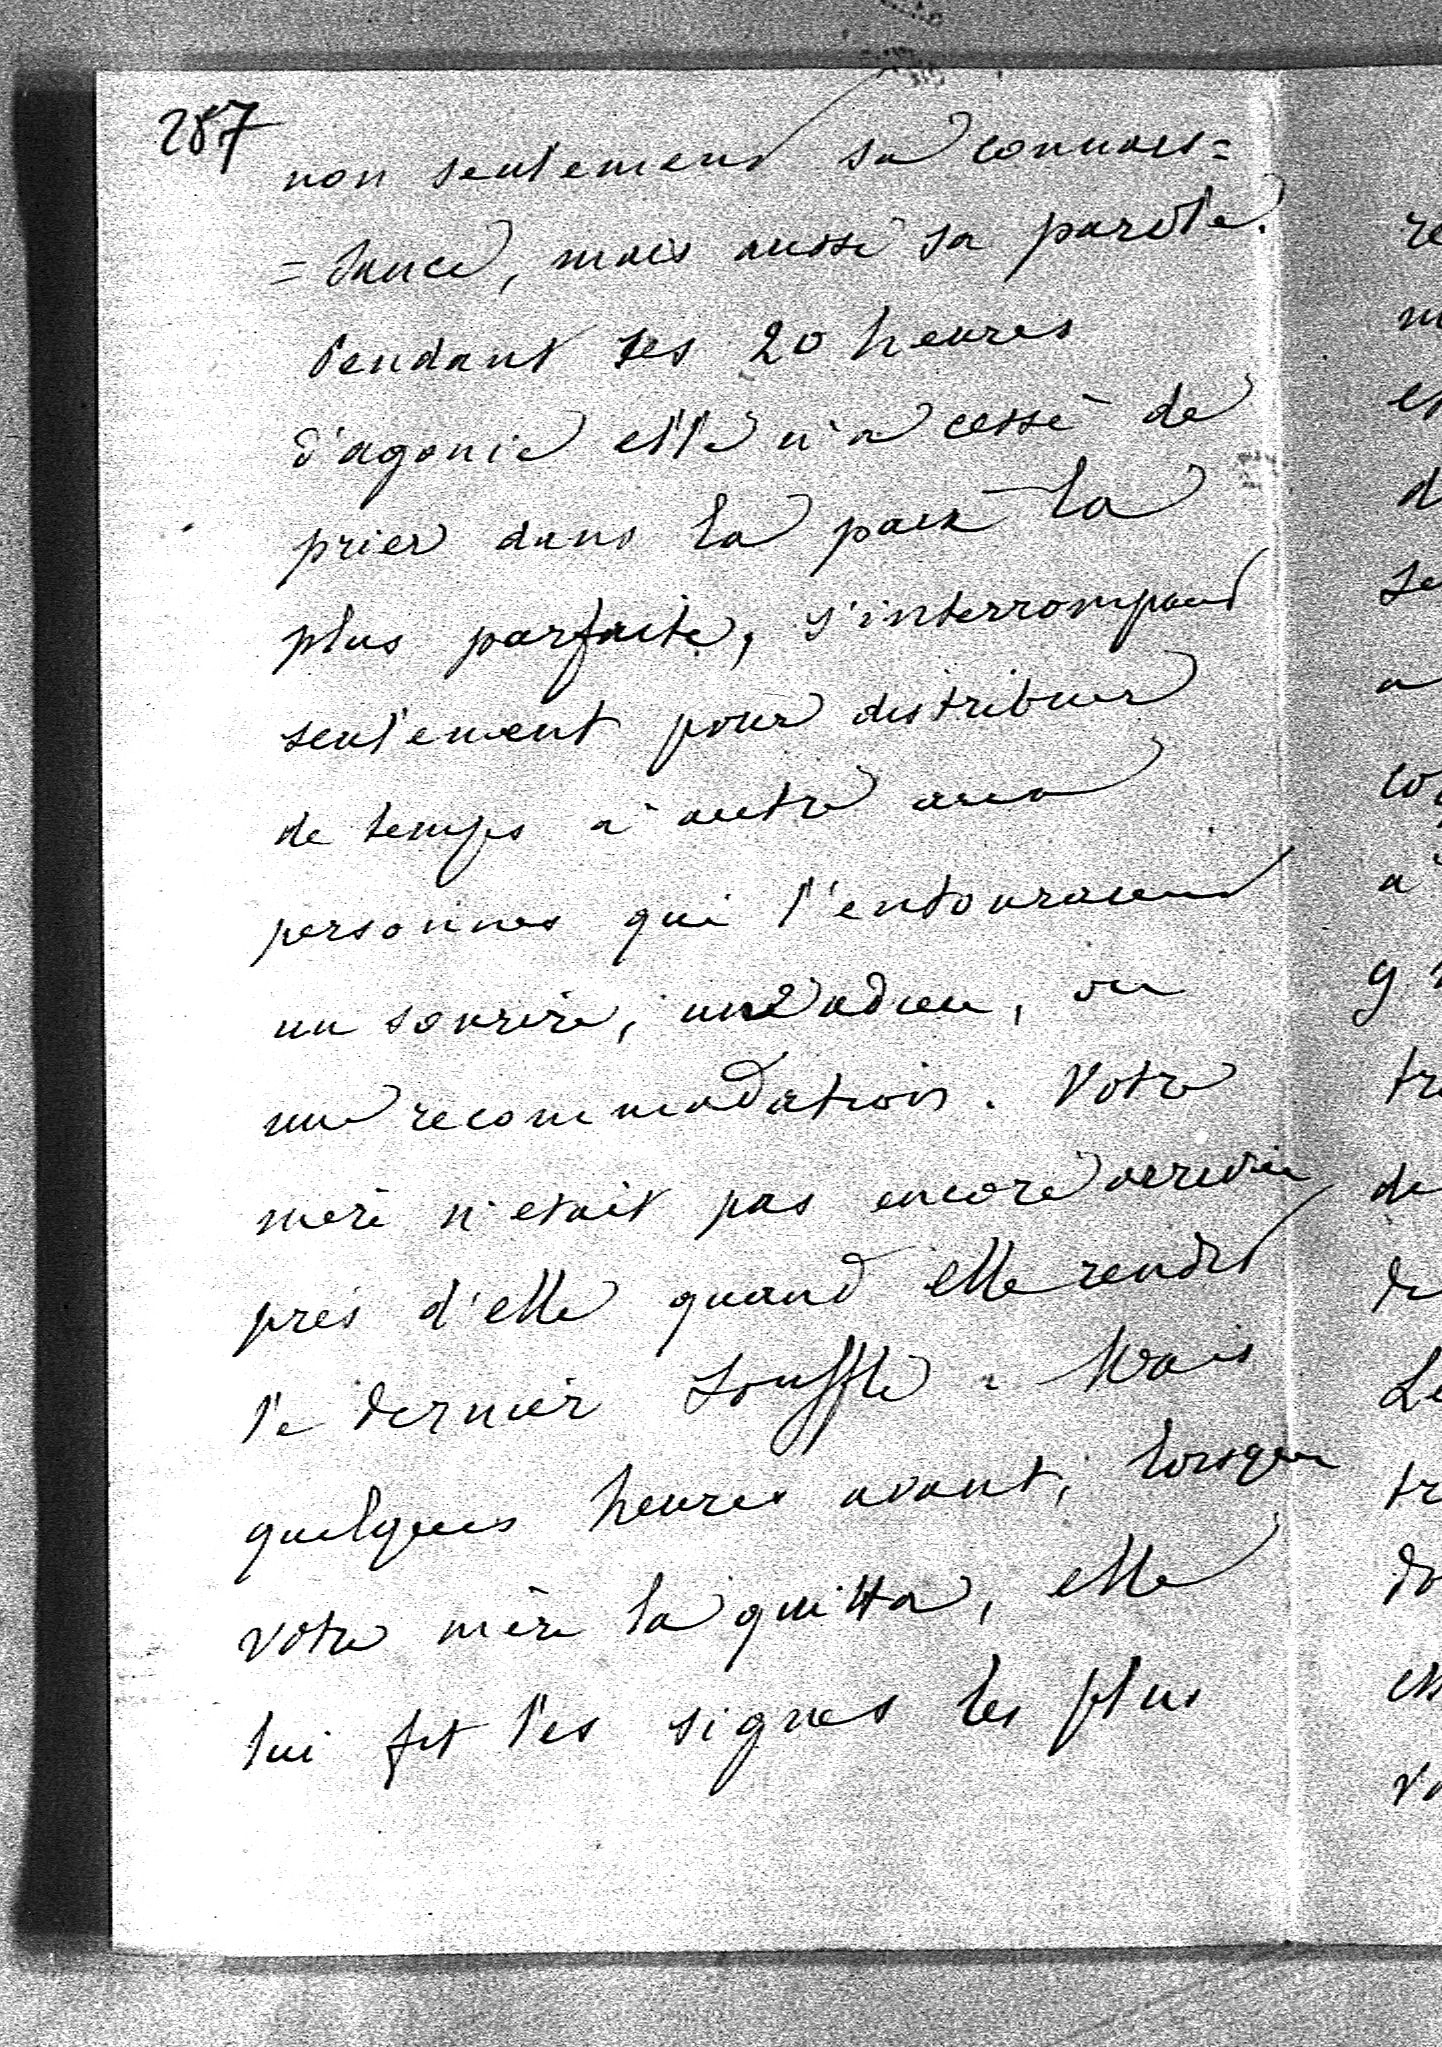 287
non seulement sa connais=
=sance, mais aussi sa parole.
Pendant ses 20 heures
d'agonie elle n'a cessé de
prier dans la paix la
plus parfaite, s'interrompant
seulement pour distribuer
de temps à autre aux
personnes qui l'entouraient
un sourire, un adieu, ou
une recommandation. Votre
mère n'etait pas encore arrivée
près d'elle quand elle rendit
le dernier souffle. Mais
quelques heures avant, lorsque
votre mère la quitta, elle
lui fit les signes les plus